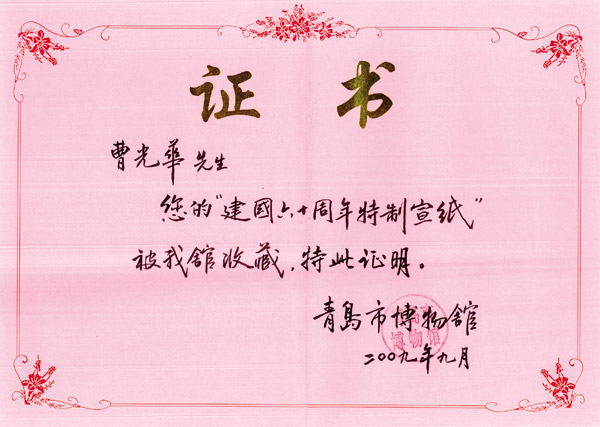 证书
曹光華先生
您的“建國六十周年特制宣纸”
被我舘收藏，特此证明。
青島市博物舘
二00九年九月
博物馆